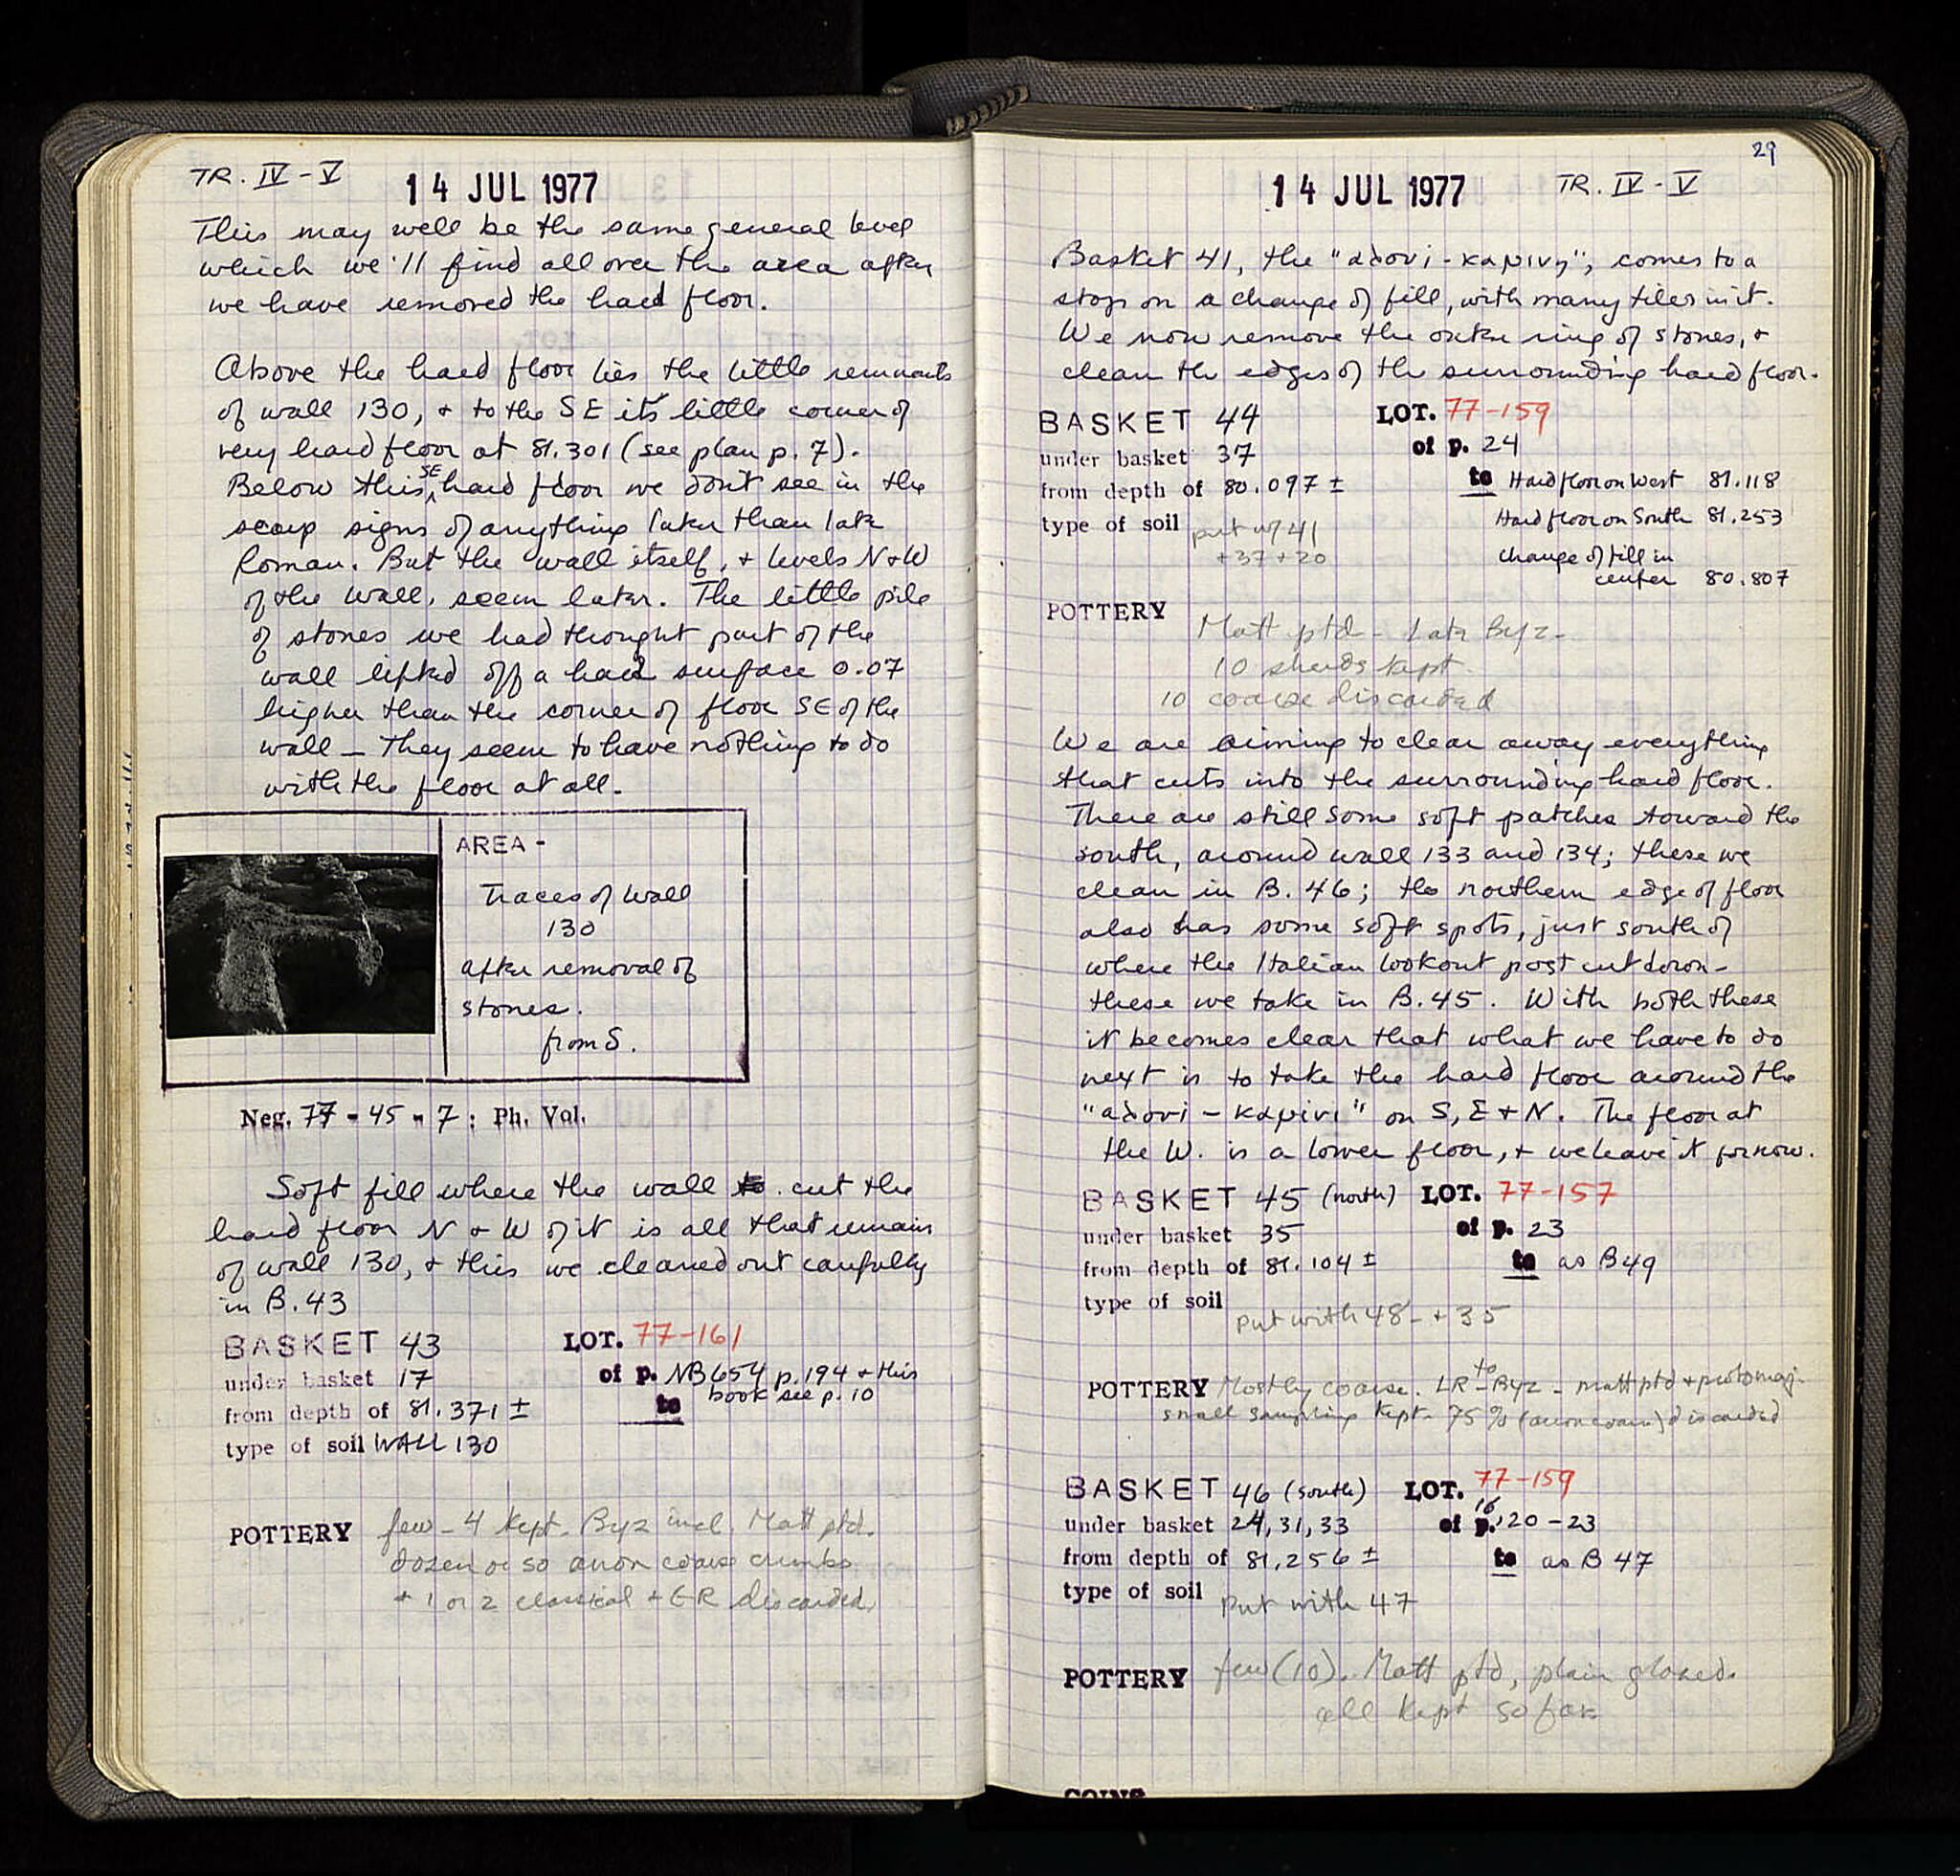 TR. IV - V
14 JUL 1977
This may well be the same general level
which we'll find all over the area after
we have removed the hard floor.
Above the hard floor lies the little remnants
of wall 130, + to the SE its little corner of
very hard floor at 81.301 (see plan p. 7).
Below this SE hard floor we don't see in the
scarp signs of anything later than late
Roman. But the wall itself, + levels N + W
of the wall, seem later. The little pile
of stones we had thought part of the
wall lifted off a hard surface 0.07
higher than the corner of floor SE of the
wall – They seem to have nothing to do
with the floor at all.
AREA -
Traces of wall
130
after removal of
stones.
from S.
Neg. 77 - 45 - 7 ; Ph. Vol.
Soft fill where the wall cut the
hard floor N + W of it is all that remains
of wall 130, + this we cleaned out carefully
in B. 43
BASKET 43 LOT. 77-161
under basket 17 of p. NB 654 p. 194 + this
book see p. 10
from depth of 81.371 ± to
type of soil WALL 130
POTTERY few - 4 kept. Byz incl. Matt ptd.
dozen or so anon coarse crumbs
+ 1 or 2 classical + ER discarded.
29
14 JUL 1977 TR. IV - V
Basket 41, the "αδονι-καμινι", comes to a
stop on a change of fill, with many tiles in it.
We now remove the outer ring of stones, +
clean the edges of the surrounding hard floor.
BASKET 44 LOT. 77-159
under basket 37 of p. 24
from depth of 80.097 ± to Hard floor on West 81.118
type of soil put w/ 41 Hard floor on South 81.253
+ 37 + 20 change of fill in
center 80.807
POTTERY Matt ptd - Late Byz -
10 sherds kept
10 coarse discarded
We are aiming to clear away everything
that cuts into the surrounding hard floor.
There are still some soft patches toward the
south, around wall 133 and 134; these we
clean in B. 46; the northern edge of floor
also has some soft spots, just south of
where the Italian lookout post cut down -
these we take in B. 45. With both these
it becomes clear that what we have to do
next is to take the hard floor around the
"αδονι - καμινι" on S, E + N. The floor at
the W. is a lower floor, + we leave it for now.
BASKET 45 (north) LOT. 77-157
under basket 35 of p. 23
from depth of 81.104 ± to as B49
type of soil put with 48 - + 35
POTTERY Mostly coarse. LR to Byz - matt ptd + protomaj.
small sampling kept - 75% (anon coarse) discarded
BASKET 46 (south) LOT. 77-159
under basket 24, 31, 33 of p. 16, 20 - 23
from depth of 81.256 ± to as B 47
type of soil put with 47
POTTERY few (10). Matt ptd, plain glazed.
all kept so far
COINS